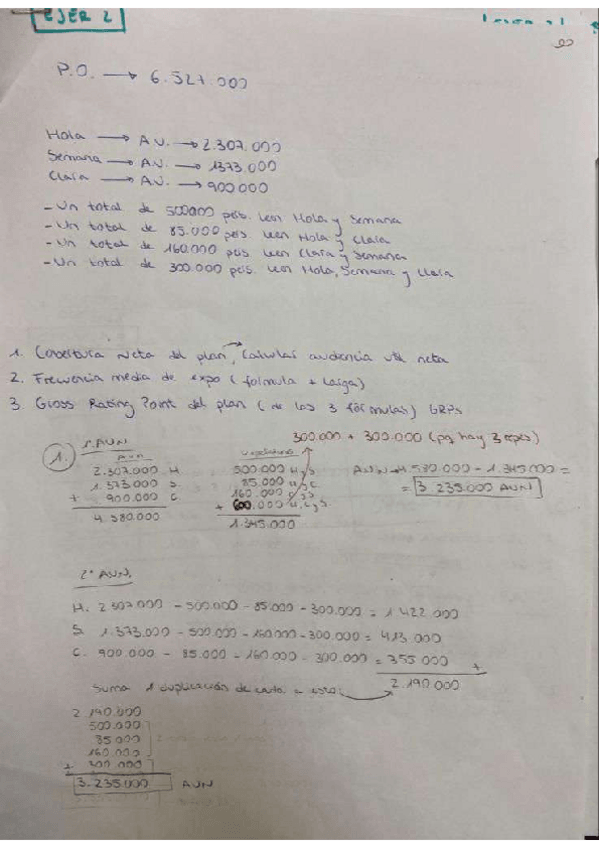 EJER 2
P.O. → 6.527.000
Hola → A.U. → 2.307.000
Semana → A.U. → 1373.000
Clara → A.U. → 900000
- Un total de 500000 pers. leen Hola y Semana
- Un total de 85.000 pers. leen Hola y Clara
- Un total de 160.000 pers leen Clara y Semana
- Un total de 300.000 pers leen Hola, Semana y Clara
1. Cobertura Neta del plan, calcular audiencia útil neta
2. Frecuencia media de expo (fórmula + larga)
3. Gross Rating Point del plan (de las 3 fórmulas) GRPs
300.000 + 300.000 (pq hay 3 repes)
1. 1º AUN
2.307.000 H 500.000 H,S AUN → 4.580.000 - 1.345.000 =
1.373.000 S. 85.000 H,C = 3.235.000 AUN
+ 900.000 C. 160.000 C,S
4.580.000 + 600.000 H,C,S.
1.345.000
2º AUN.
H. 2.307.000 - 500.000 - 85.000 - 300.000 = 1422.000
S. 1.373.000 - 500.000 - 160.000 - 300.000 = 413.000
C. 900.000 - 85.000 - 160.000 - 300.000 = 355 000 +
2.190.000
Suma 1 duplicación de cada a eso:
2.190.000
500.000
85 000
160.000
+ 300.000
3.235.000 AUN